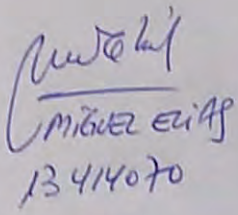 MIGUEL ELIAS
13414070